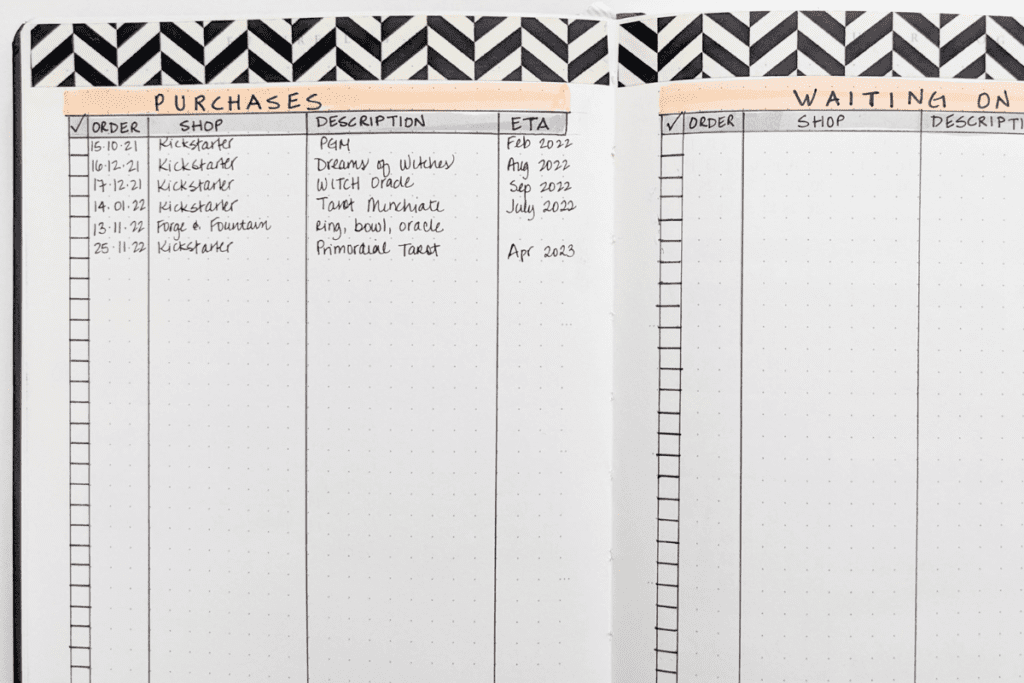 PURCHASES
✓ ORDER SHOP DESCRIPTION ETA
15.10.21 Kickstarter PGM Feb 2022
16.12.21 Kickstarter Dreams of Witches Aug 2022
17.12.21 Kickstarter WITCH Oracle Sep 2022
14.01.22 Kickstarter Tarot Minchiate July 2022
13.11.22 Forge & Fountain ring, bowl, oracle
25.11.22 Kickstarter Primordial Tarot Apr 2023
WAITING ON
✓ ORDER SHOP DESCRIPTI